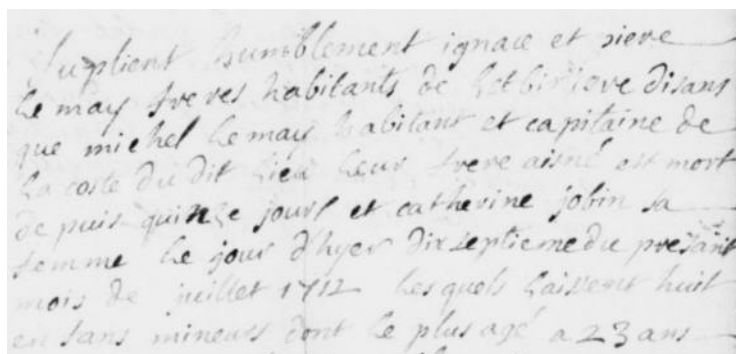 Suplient humblement ignace et piere
Le may freres habitants de Lotbiniere disans
que michel Le may habitant et capitaine de
La coste du dit Lieu Leur frere aisné est mort
de puis quinze jours et catherine jobin sa
femme Le jour d'hyer dix septieme du presant
mois de juillet 1712 Lesquels Laissent huit
enfans mineurs dont Le plus agé a 23 ans